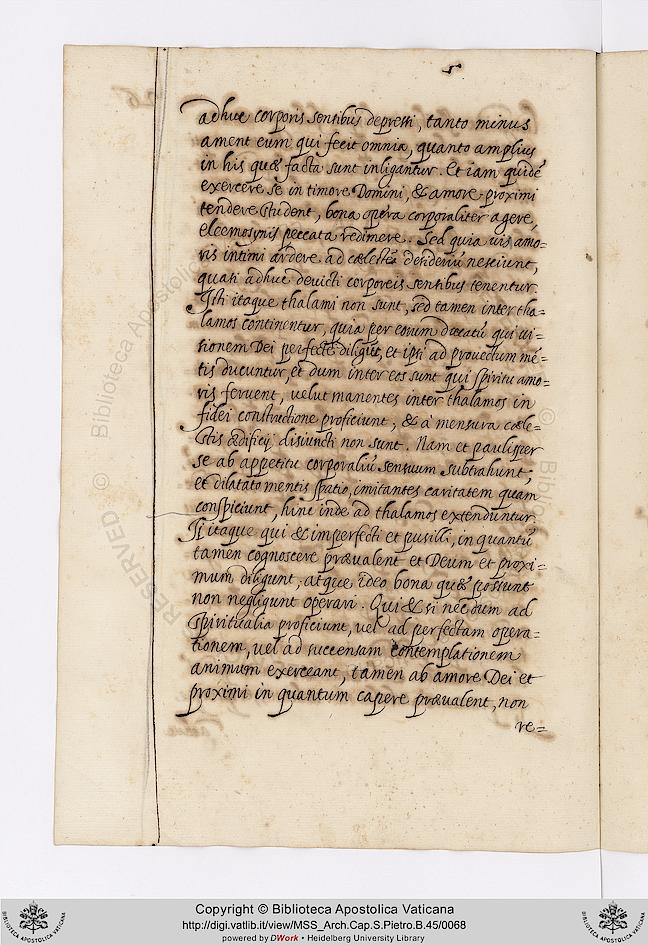 adhuc corporis sensibus depressi, tanto minus
ament eum qui fecit omnia, quanto amplius
in his quæ facta sunt inligantur. Et iam quidē
exercere se in timore Domini, & amore proximi
tendere student, bona opera corporaliter agere,
elcemosynis peccata redimere. Sed quia vis amo=
ris intimi ardere ad cælestis desideriū nesciunt,
quasi adhuc devicti corporeis sensibus tenentur.
Isti itaque thalami non sunt, sed tamen inter tha=
lamos continentur, quia per eorum ducatū qui vi=
sionem Dei perfectè diligūt, et ipsi ad provectum mē=
tis ducuntur, et dum inter eos sunt qui spiritu amo=
ris fervent, velut manentes inter thalamos in
fidei constructione proficiunt, & à mensura cæle=
stis ædificij disiuncti non sunt. Nam et paulisper
se ab appetitu corporaliū sensuum subtrahunt;
et dilatato mentis spatio, imitantes caritatem quam
conspiciunt, hinc inde ad thalamos extenduntur.
Ii itaque qui & imperfecti et pusilli, in quantū
tamen cognoscere prævalent et Deum et proxi=
mum diligunt, atque ideo bona quæ possunt
non negligunt operari. Qui & si necdum ad
spiritualia proficiunt, vel ad perfectam opera=
tionem, vel ad succensam contemplationem
animum exerceant, tamen ab amore Dei et
proximi in quantum capere prævalent, non
re=
RESERVED © Biblioteca Apostolica
Copyright © Biblioteca Apostolica Vaticana
http://digi.vatlib.it/view/MSS_Arch.Cap.S.Pietro.B.45/0068
powered by DWork • Heidelberg University Library
BIBLIOTECA APOSTOLICA VATICANA
BIBLIOTECA APOSTOLICA VATICANA